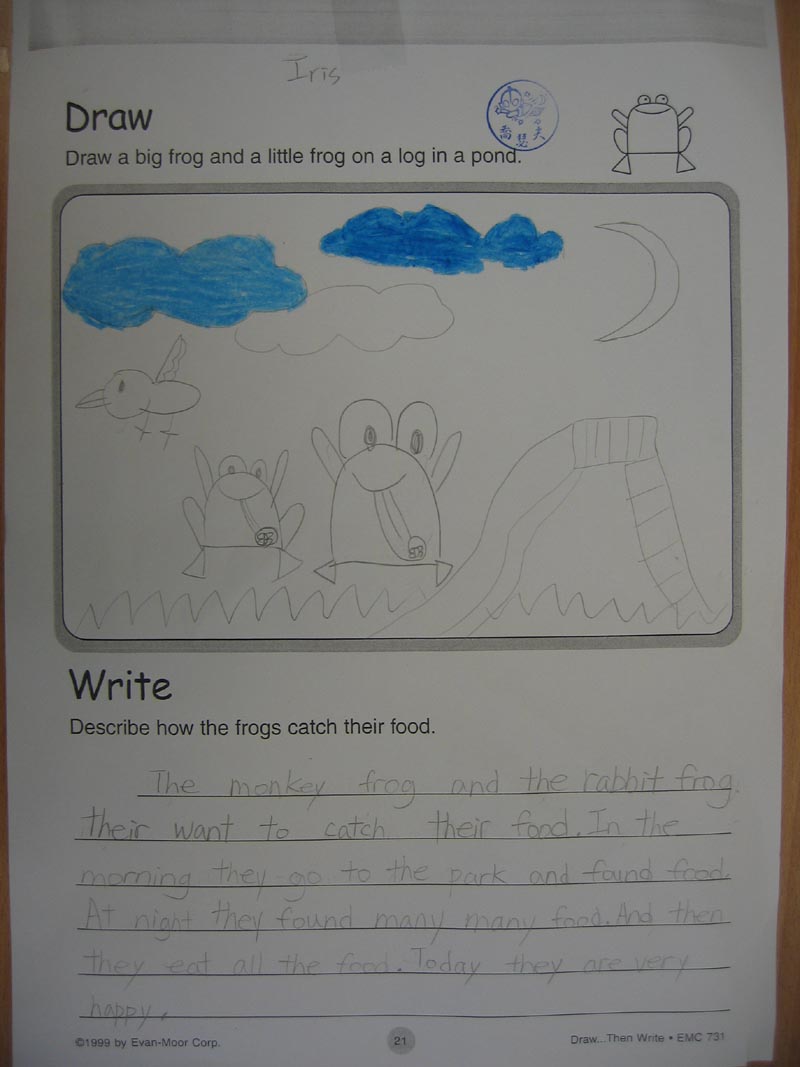 Iris
Draw
Draw a big frog and a little frog on a log in a pond.
Write
Describe how the frogs catch their food.
The monkey frog and the rabbit frog.
their want to catch their food. In the
morning they go to the park and found food.
At night they found many many food. And then
they eat all the food. Today they are very
happy.
©1999 by Evan-Moor Corp.
21
Draw...Then Write • EMC 731